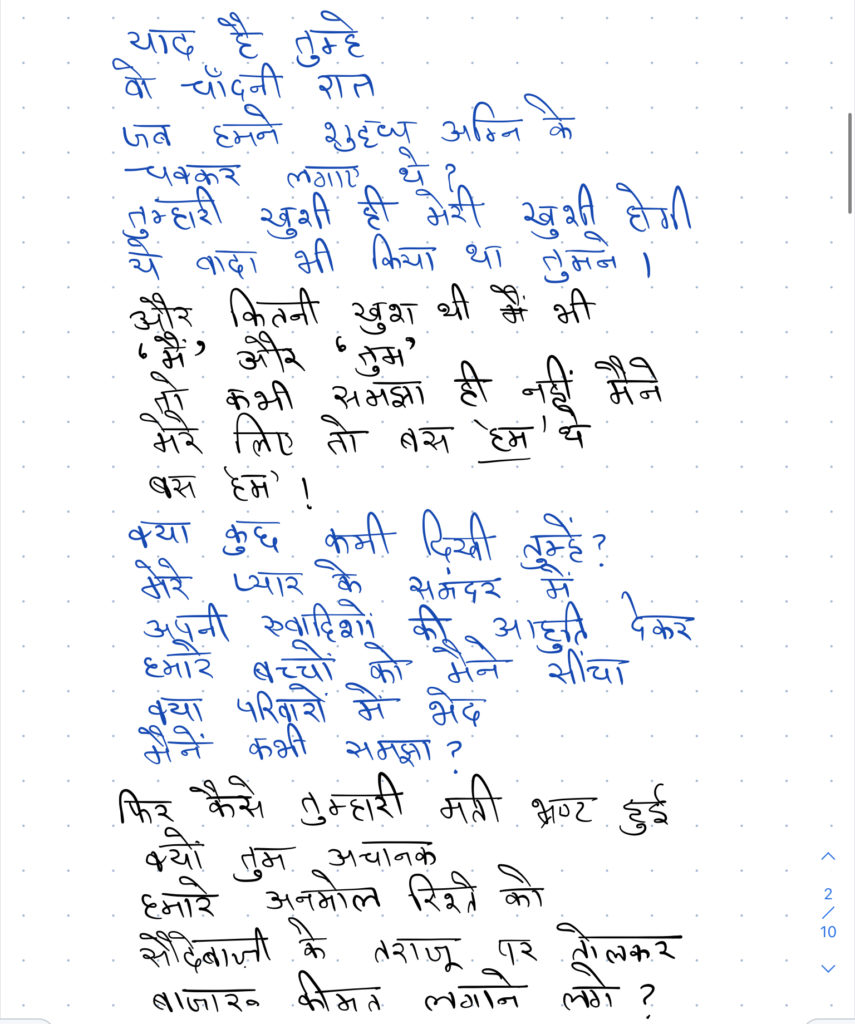 याद है तुम्हे
वो चाँदनी रात
जब हमने शुद्ध अग्नि के
चक्कर लगाए थे?
तुम्हारी खुशी ही मेरी खुशी होगी
ये वादा भी किया था तुमने ।
और कितनी खुश थी मैं भी
'मैं' और 'तुम'
तो कभी समझा ही नहीं मैने
मेरे लिए तो बस 'हम' थे
बस 'हम' !
क्या कुछ कमी दिखी तुम्हें?
मेरे प्यार के समंदर में
अपनी ख्वाहिशों की आहुति देकर
हमारे बच्चों को मैने सींचा
क्या परिवारों में भेद
मैनें कभी समझा?
फिर कैसे तुम्हारी मती भ्रष्ट हुई
क्यों तुम अचानक
हमारे अनमोल रिश्ते को
सौदेबाजी के तराजू पर तोलकर
बाजारू कीमत लगाने लगे ?
2
/
10